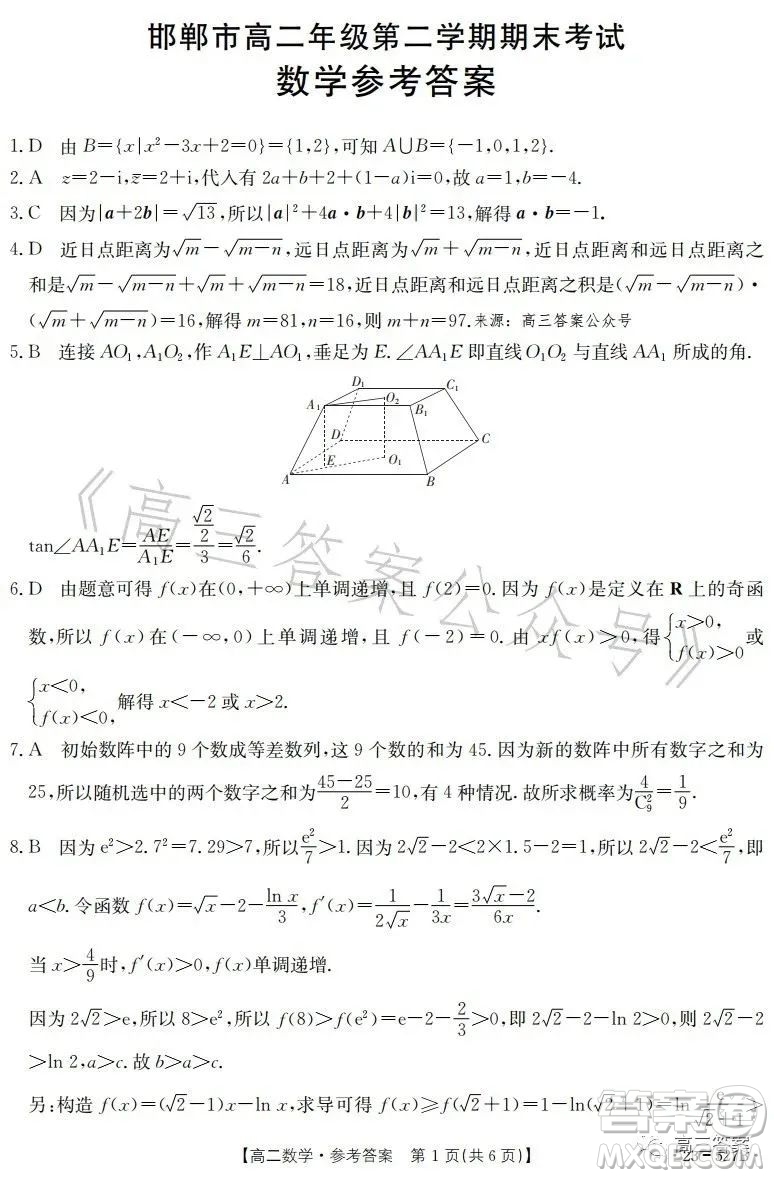 邯郸市高二年级第二学期期末考试
数学参考答案
1. D 由 B={x|x²-3x+2=0}={1,2},可知 A∪B={-1,0,1,2}.
2. A z=2-i,z̄=2+i,代入有 2a+b+2+(1-a)i=0,故 a=1,b=-4.
3. C 因为|a+2b|=√13,所以|a|²+4a·b+4|b|²=13,解得 a·b=-1.
4. D 近日点距离为√m-√(m-n),远日点距离为√m+√(m-n),近日点距离和远日点距离之
和是√m-√(m-n)+√m+√(m-n)=18,近日点距离和远日点距离之积是(√m-√(m-n))·
(√m+√(m-n))=16,解得 m=81,n=16,则 m+n=97.来源:高三答案公众号
5. B 连接 AO₁,A₁O₂,作 A₁E⊥AO₁,垂足为 E.∠AA₁E 即直线 O₁O₂ 与直线 AA₁ 所成的角.
D₁ C₁
A₁ O₂ B₁
D C
E O₁
A B
《高三答案公众号》
tan∠AA₁E=AE/A₁E=(√2/2)/3=√2/6.
6. D 由题意可得 f(x)在(0,+∞)上单调递增,且 f(2)=0.因为 f(x)是定义在 R 上的奇函
数,所以 f(x)在(-∞,0)上单调递增,且 f(-2)=0.由 xf(x)>0,得{x>0, f(x)>0 或
{x<0, f(x)<0, 解得 x<-2 或 x>2.
7. A 初始数阵中的 9 个数成等差数列,这 9 个数的和为 45.因为新的数阵中所有数字之和为
25,所以随机选中的两个数字之和为(45-25)/2=10,有 4 种情况.故所求概率为4/C₉²=1/9.
8. B 因为 e²>2.7²=7.29>7,所以e²/7>1.因为 2√2-2<2×1.5-2=1,所以 2√2-2<e²/7,即
a<b.令函数 f(x)=√x-2-ln x/3,f′(x)=1/(2√x)-1/(3x)=(3√x-2)/(6x).
当 x>4/9时,f′(x)>0,f(x)单调递增.
因为 2√2>e,所以 8>e²,所以 f(8)>f(e²)=e-2-2/3>0,即 2√2-2-ln 2>0,则 2√2-2
>ln 2,a>c.故 b>a>c.
另:构造 f(x)=(√2-1)x-ln x,求导可得 f(x)≥f(√2+1)=1-ln(√2+1)=ln
【高二数学·参考答案 第 1 页(共 6 页)】
高三答案
答案圈